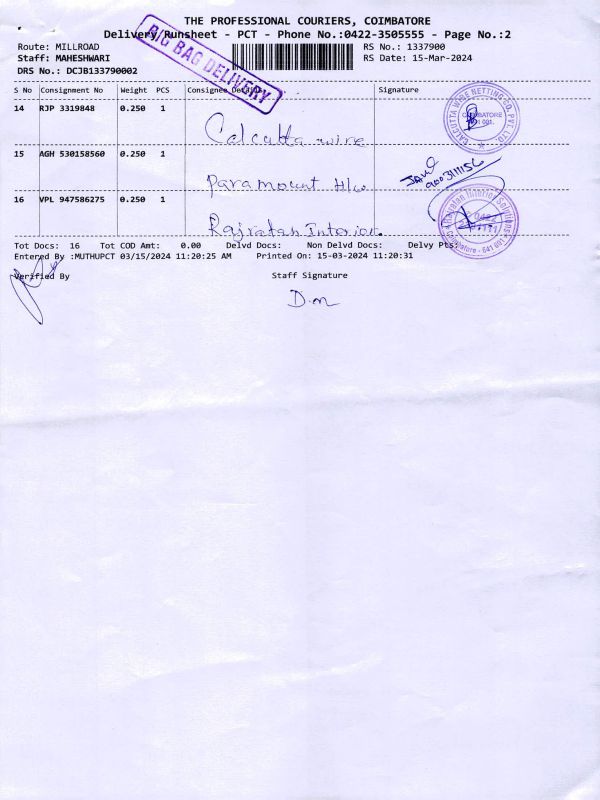 THE PROFESSIONAL COURIERS, COIMBATORE
Delivery/Runsheet - PCT - Phone No.:0422-3505555 - Page No.:2
Route: MILLROAD
RS No.: 1337900
Staff: MAHESHWARI
RS Date: 15-Mar-2024
DRS No.: DCJB133790002
BIG BAG DELIVERY
S No Consignment No Weight PCS Consignee Details Signature
14 RJP 3319848 0.250 1 Calcutta wire
CALCUTTA WIRE NETTING CO. PVT. LTD.
COIMBATORE
641 001.
15 AGH 530158560 0.250 1 Paramount H/w
9003111156
16 VPL 947586275 0.250 1 Rajratan Interior
Rajratan Interior Solutions
Coimbatore - 641 001
Tot Docs: 16 Tot COD Amt: 0.00 Delvd Docs: Non Delvd Docs: Delvy Pts:
Entered By :MUTHUPCT 03/15/2024 11:20:25 AM Printed On: 15-03-2024 11:20:31
Verified By Staff Signature